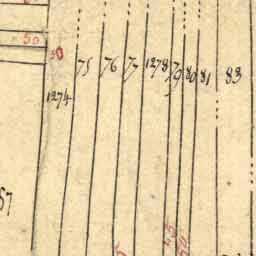 50
50
1274 75 76 77 1278 79 80 81 83
57